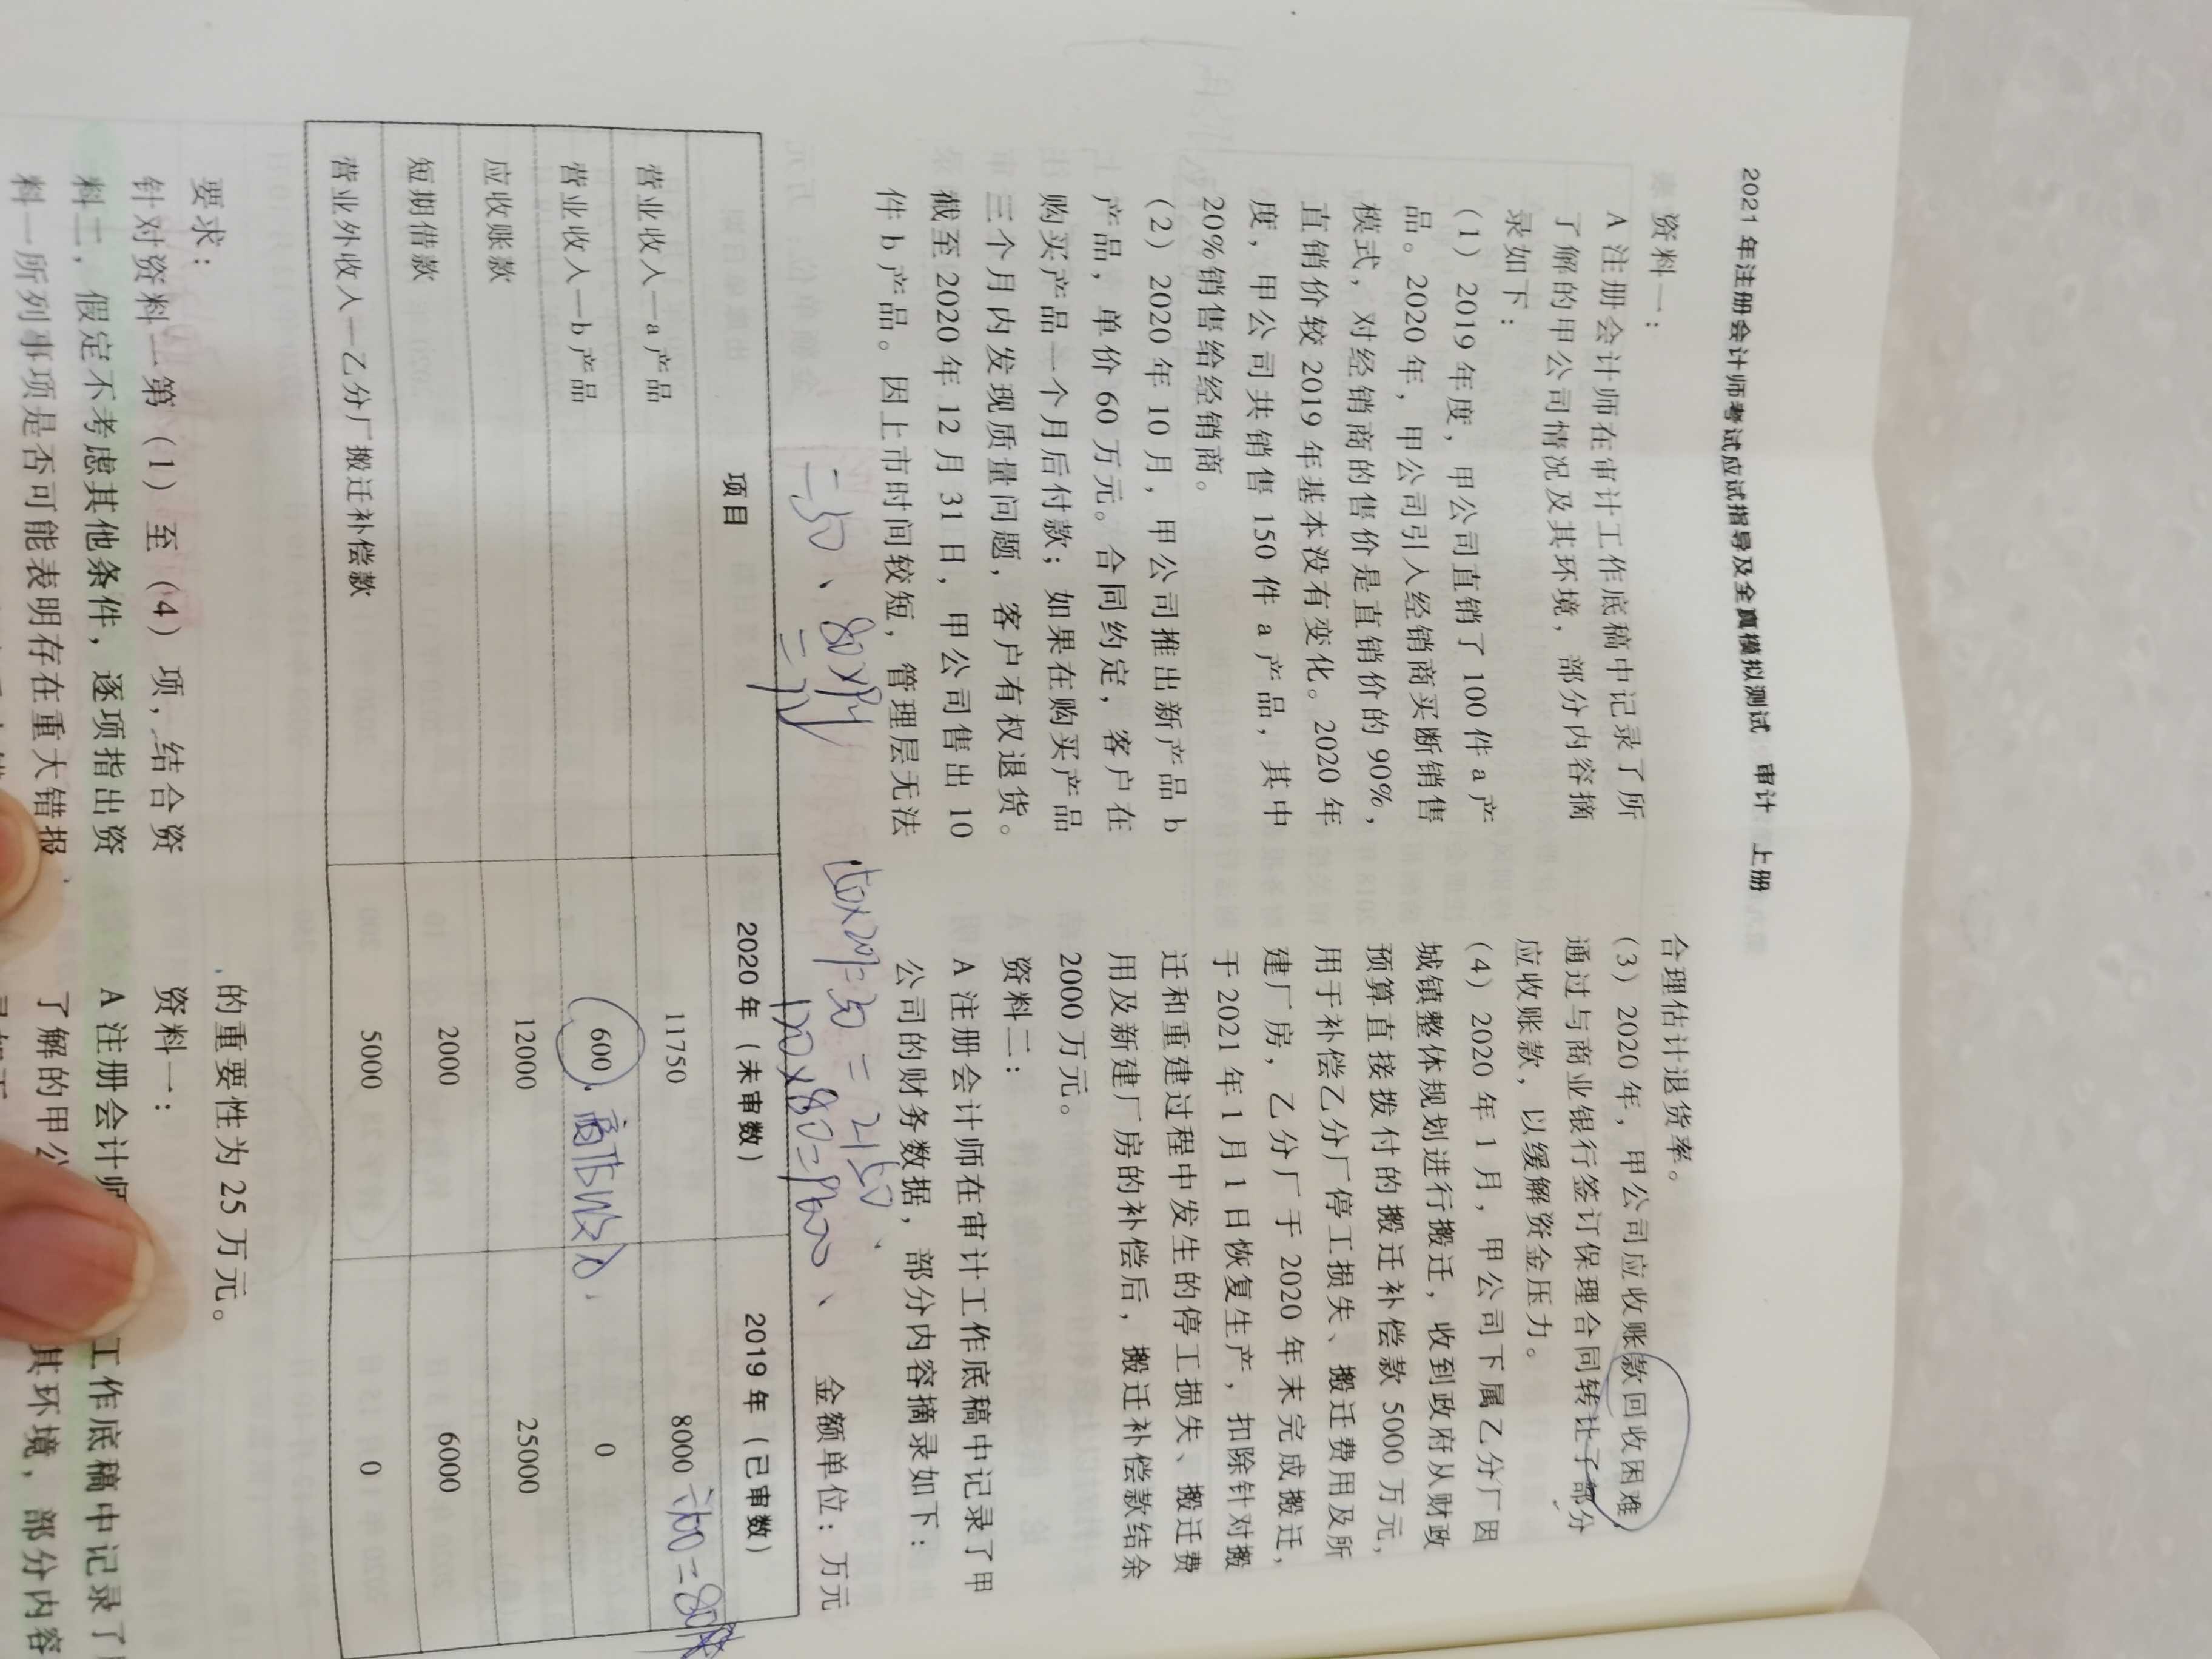 2021 年注册会计师考试应试指导及全真模拟测试 审计 上册
资料一：
A 注册会计师在审计工作底稿中记录了所
了解的甲公司情况及其环境，部分内容摘
录如下：
（1）2019 年度，甲公司直销了 100 件 a 产
品。2020 年，甲公司引入经销商买断销售
模式，对经销商的售价是直销价的 90%，
直销价较 2019 年基本没有变化。2020 年
度，甲公司共销售 150 件 a 产品，其中
20%销售给经销商。
（2）2020 年 10 月，甲公司推出新产品 b
产品，单价 60 万元。合同约定，客户在
购买产品一个月后付款；如果在购买产品
三个月内发现质量问题，客户有权退货。
截至 2020 年 12 月 31 日，甲公司售出 10
件 b 产品。因上市时间较短，管理层无法
合理估计退货率。
（3）2020 年，甲公司应收账款回收困难，
通过与商业银行签订保理合同转让了部分
应收账款，以缓解资金压力。
（4）2020 年 1 月，甲公司下属乙分厂因
城镇整体规划进行搬迁，收到政府从财政
预算直接拨付的搬迁补偿款 5000 万元，
用于补偿乙分厂停工损失、搬迁费用及所
建厂房，乙分厂于 2020 年末完成搬迁，
于 2021 年 1 月 1 日恢复生产，扣除针对搬
迁和重建过程中发生的停工损失、搬迁费
用及新建厂房的补偿后，搬迁补偿款结余
2000 万元。
资料二：
A 注册会计师在审计工作底稿中记录了甲
公司的财务数据，部分内容摘录如下：
150×20%=30=2150
120×80=9600
金额单位：万元
项目 2020 年（未审数） 2019 年（已审数）
营业收入—a 产品 11750 8000 ÷100=80
营业收入—b 产品 600 0
应收账款 12000 25000
短期借款 2000 6000
营业外收入—乙分厂搬迁补偿款 5000 0
要求：
针对资料一第（1）至（4）项，结合资
料二，假定不考虑其他条件，逐项指出资
料一所列事项是否可能表明存在重大错报
的重要性为 25 万元。
资料一：
A 注册会计师 工作底稿中记录了
了解的甲公 其环境，部分内容